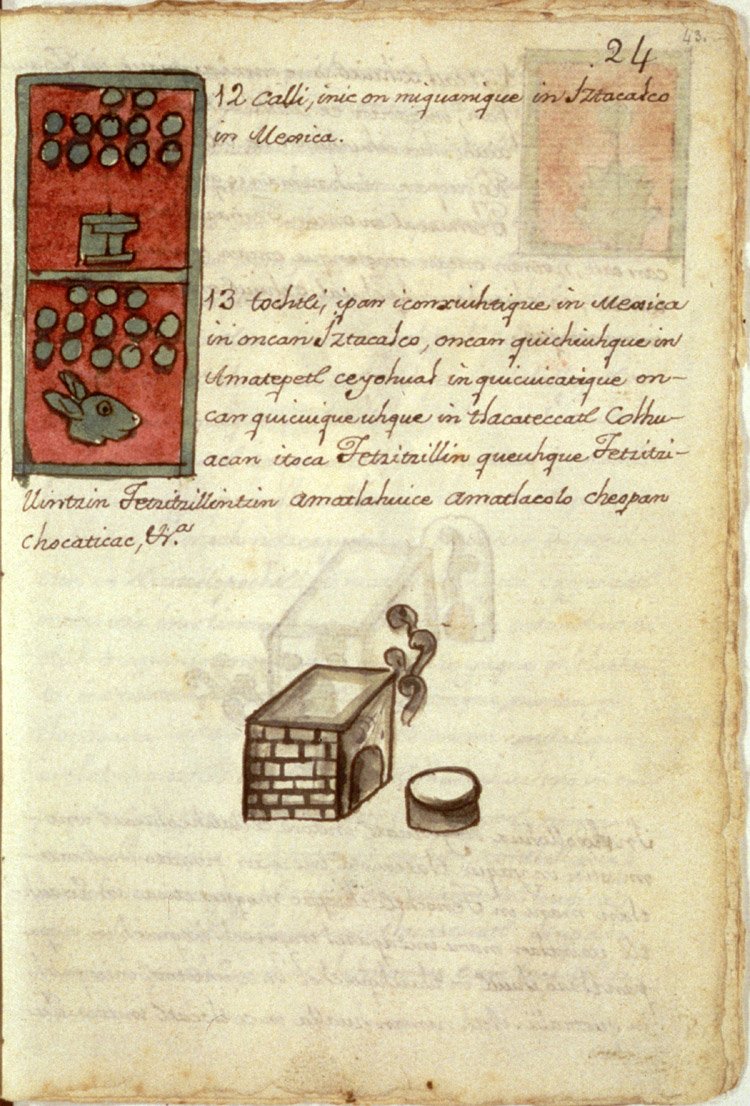 43.
24
12 calli, inic on miquanique in Iztacalco
in Mexica.
13 tochtli, ipan iconxiuhtique in Mexica
in oncan Iztacalco, oncan quichiuhque in
Amatepetl ceyohual in quicuicatique on-
can quicuique uhque in tlacateccatl Colhu-
acan itoca Tetzitzillin queuhque Tetzitzi-
llintzin Tetzitzillintzin amatlahuice amatlacolo cheopan
chocaticac, &.a